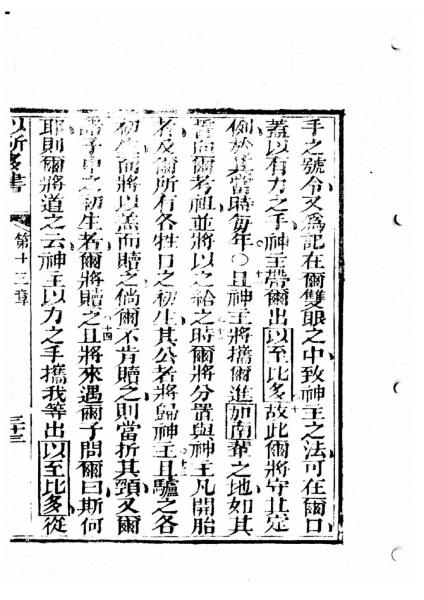 手之號令又爲記在爾雙眼之中致神主之法可在爾口
蓋以有力之手神主帶爾出以至比多故此爾將守其定
例於其當時每年○且神主將攜爾進加南輩之地如其
誓向爾考祖並將以之給之時爾將分置與神主凡開胎
者及爾所有各牲口之初生其公者將歸神主且驢之各
初生爾將以羔而贖之倘爾不肯贖之則當折其頸又爾
諸子中之初生者爾將贖之且將來遇爾子問爾曰斯何
耶則爾將道之云神主以力之手攜我等出以至比多從
書
第十三章
三十三